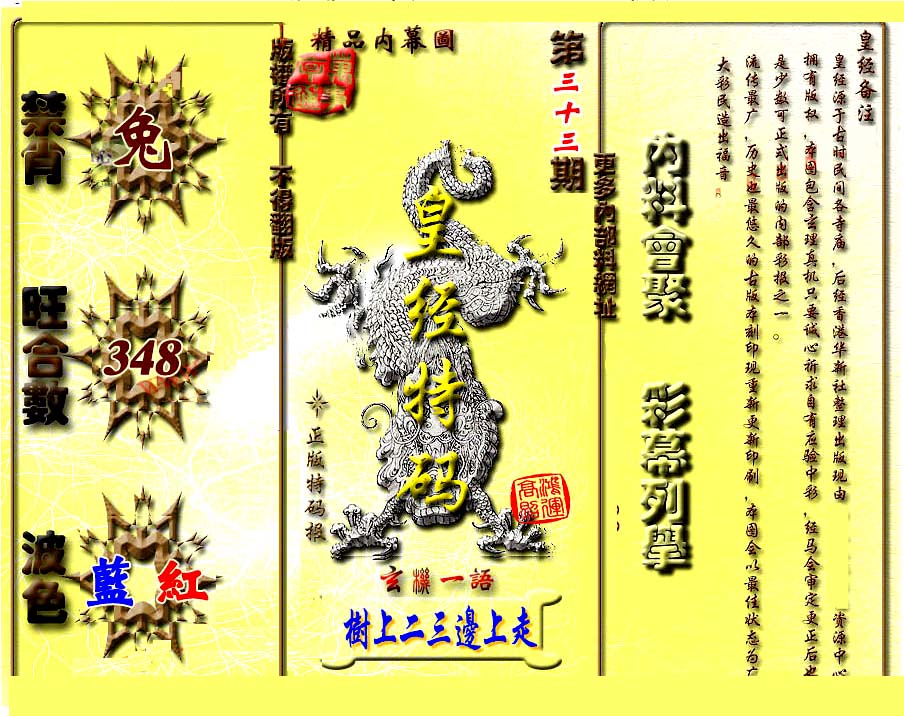 皇经备注
皇经源于古时民间各寺庙，后经香港华新社整理出版现由
资源中心
拥有版权，本图包含玄理真机只要诚心祈求自有应验中彩，经马会审定更正后也
是少数可正式出版的内部彩报之一。
流传最广，历史也最悠久的古版本刻印现重新更新印刷，本图会以最佳状态为广
大彩民造出福音
內料會聚
彩幕列舉
更多內部料網址
第三十三期
精品内幕圖
皇经特码
正版特码报
鴻運高照
玄機一語
樹上二三邊上走
版權所有 不得翻版
禁肖
兔
旺合數
348
波色
藍 紅